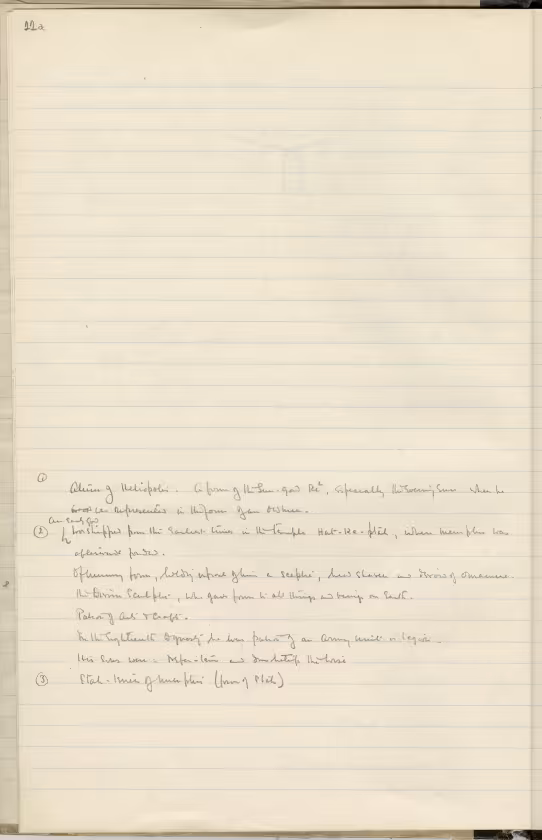 22a
①
Atum of Heliopolis. A form of the Sun-god Re, especially the Evening Sun when he
was represented in the form of an old man.
An Early God
② worshipped from the Earliest times in the Temple Hat-ka-ptah, where Memphis was
afterwards founded.
Of human form, holding in front of him a sceptre, head shaven and devoid of ornament.
The Divine Sculptor, who gave form to all things and beings on Earth.
Patron of Art & Crafts.
In the Eighteenth Dynasty he was patron of an army unit or legion.
His Sons were: Nefer-tem and
③ of Memphis (form of Ptah)